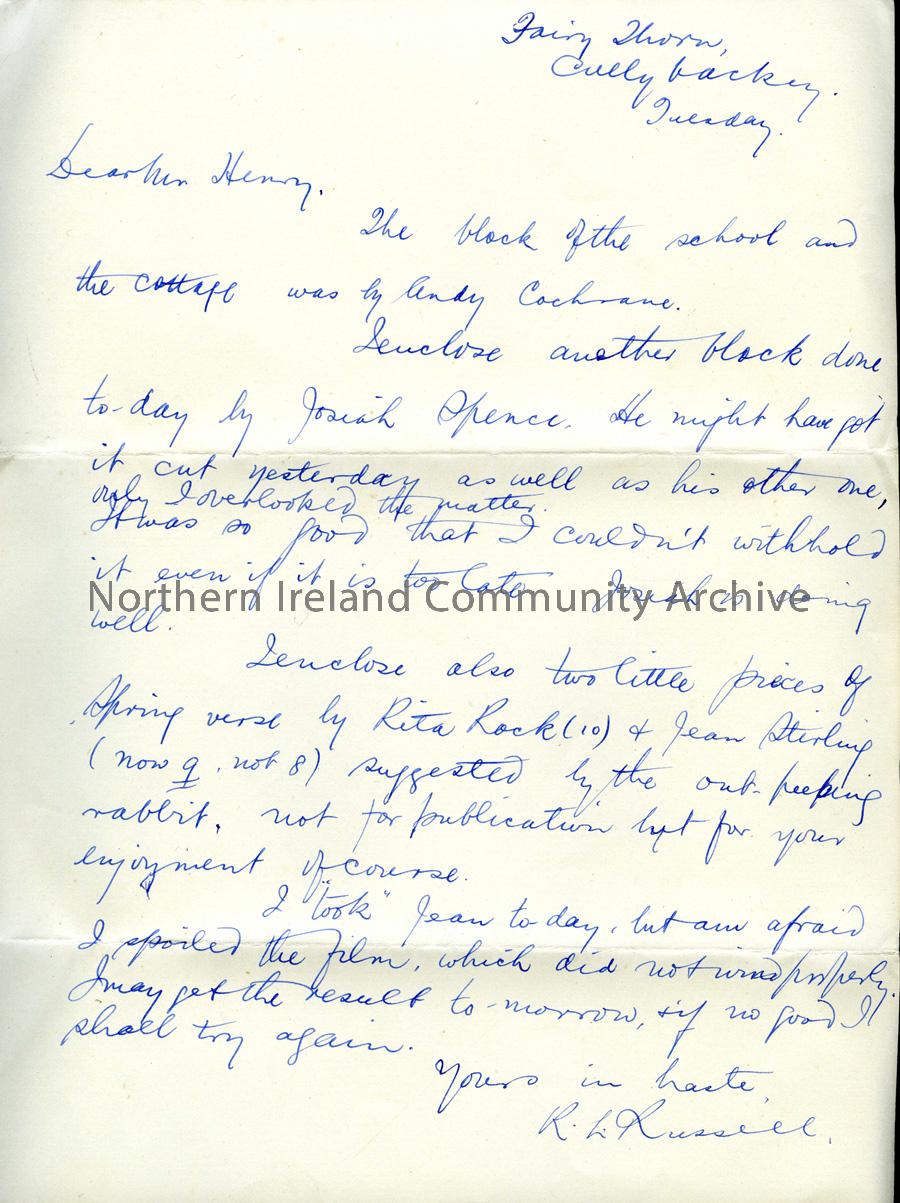 Fairy Thorn,
Cullybackey.
Tuesday.
Dear Mr Henry.
The block of the school and
the cottage was by Andy Cochrane.
I enclose another block done
to-day by Josiah Spence. He might have got
it cut yesterday as well as his other one,
only I overlooked the matter.
It was so good that I couldn't withhold
it even if it is too late Josiah is doing
Northern Ireland Community Archive
well.
I enclose also two little pieces of
Spring verse by Rita Rock (10) & Jean Stirling
(now 9. not 8) suggested by the out-peeping
rabbit, not for publication but for your
enjoyment of course.
I "took" Jean to day, but am afraid
I spoiled the film, which did not wind properly.
I may get the result to-morrow, & if no good I
shall try again.
Yours in haste,
R. L. Russell.